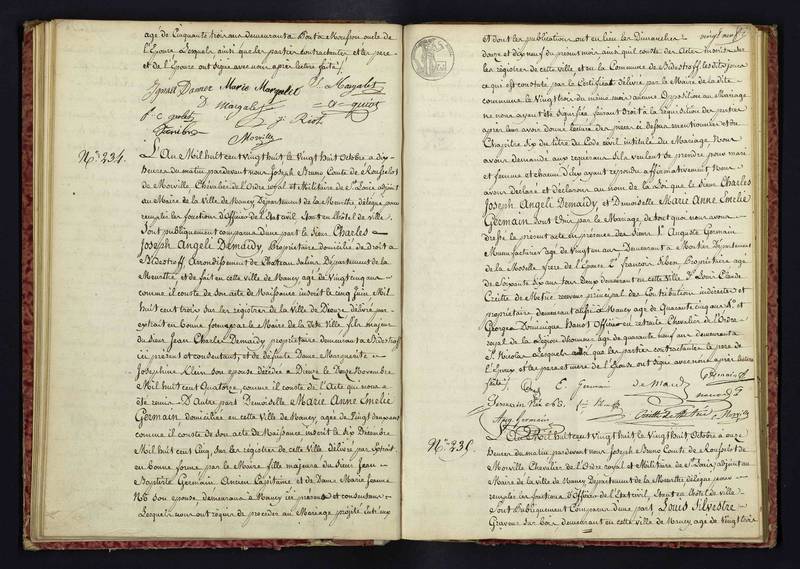 agé de Cinquante trois ans demeurant a Pont a Mousson oncle de
l'Epouse Lesquels ainsi que les parties contractantes et les pere
et de l'Epouse ont Signé avec nous après lecture faite/.
Marie Margalet Margalet
D Margalet
Morville
No. 234.
L'An Mil huit cent vingt huit le vingt huit Octobre a dix
heures du matin pardevant nous Joseph Bruno Comte de Rousselot
de Morville, Chevalier de l'Ordre royal et Militaire de St. Louis adjoint
au Maire de la Ville de Nancy Departement de la Meurthe délégué pour
remplir les fonctions d'Officier de l'Etat civil Etant en l'hôtel de ville
Sont publiquement comparus d'une part le sieur Charles
Joseph Angeli Demaidy, Propriétaire domicilié de Droit a
Bidestroff Arrondissement de Chateau Salins Département de la
Meurthe et de fait en cette ville de Nancy agé de Vingt cinq ans
comme il conste de son acte de Naissance inscrit le cinq Juin Mil
huit cent trois sur les registres de la Ville de Dieuze délivré par
extrait en bonne forme par le Maire de la dite Ville fils majeur
du Sieur Jean Charles Demaidy propriétaire demeurant a Bidestroff
ici présent et consentant, et de défunte Dame Marguerite
Josephine Klein son épouse décédée a Dieuze le Douze Novembre
Mil huit cent Quatorze comme il conste de l'Acte qui nous a
été remis. D'Autre part Demoiselle Marie Anne Emélie
Germain domiciliée en cette Ville de Nancy, agée de Vingt deux ans
comme il conste de son acte de Naissance inscrit le dix Décembre
Mil huit cent cinq sur les registres de cette Ville délivré par Extrait
en bonne forme par le Maire fille majeure du Sieur Jean
Baptiste Germain Ancien Capitaine et de Dame Marie Jeanne
Noé son épouse demeurans a Nancy ici présens et consentans
Lesquels nous ont requis de procéder au Mariage projeté entr'eux
et dont les publications ont eu lieu les Dimanches
douze et dix neuf du présent mois ainsi qu'il conste des Actes inscrits sur
les registres de cette ville, et en la Commune de Bidestroff les dits jours
ce qui est constaté par le Certificat délivré par le Maire de la dite
commune le Vingt trois du même mois; aucune Opposition au Mariage
ne nous ayant été signifiée faisant droit a la réquisition des parties
après leur avoir donné lecture des pièces ci dessus mentionnées et du
Chapitre Six du titre du Code civil intitulé du Mariage, Nous
avons demandé aux requerans s'ils veulent se prendre pour mari
et femme et chacun d'Eux ayant repondu affirmativement nous
avons Déclaré et déclarons au nom de la Loi que le Sieur Charles
Joseph Angeli Demaidy, et Demoiselle Marie Anne Emélie
Germain Sont Unis par le Mariage, de tout quoi nous avons
dressé le présent acte en présence des Sieurs Auguste Germain
Manufacturier agé de Vingt un ans Demeurant a Département
de la Moselle frere de l'Epouse François Propriétaire agé
de Soixante six ans tous deux demeurans en cette Ville Louis Claude
de receveur principal des Contributions indirectes et
propriétaire demeurant aussi a Nancy agé de Quarante cinq ans
Georges Dominique Hanot Officier en retraite Chevalier de l'Ordre
royal de la Légion d'honneur agé de quarante huit ans demeurant a
St. Nicolas Lesquels ainsi que les parties contractantes le pere de
l'Epoux et les pere et mere de l'Epouse ont signé avec nous après lecture
faite/.
E. Germain de Maidy Germain
Aug. Germain Morville
No. 235.
L'An Mil huit cent Vingt huit le Vingt huit Octobre a onze
heures du matin pardevant nous Joseph Bruno Comte de Rousselot de
Morville Chevalier de l'Ordre royal et Militaire de St. Louis adjoint au
Maire de la Ville de Nancy Département de la Meurthe délégué pour
remplir les fonctions d'Officier de l'Etat civil, Etant en l'hôtel de ville
Sont Publiquement Comparus d'une part, Louis Silvestre
Graveur Sur bois, demeurant en cette ville de Nancy, agé de Vingt trois